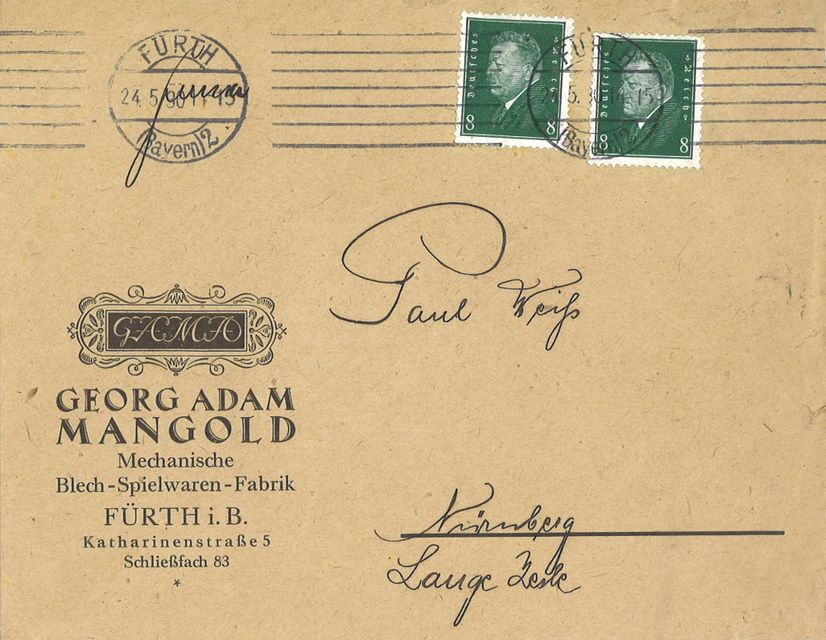 FÜRTH
24.5.30 11-15
(Bayern) 2
Deutsches Reich
8 8
Deutsches Reich
8 8
FÜRTH
(Bayern) 2
Paul Weiß
GAMA
GEORG ADAM
MANGOLD
Mechanische
Blech-Spielwaren-Fabrik
FÜRTH i. B.
Katharinenstraße 5
Schließfach 83
*
Nürnberg
Lange Zeile